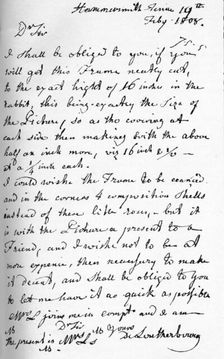 Hammersmith Terrace 19th
Feby 1805.
Dr Sir
I shall be obliged to you, if you'l
will get this Frame neatly cut,
to the exact hight of 16 inches in the
rabbit, this being exactly the Size of
the Picture, so as the covering at
each side then making with the above
half an inch more, viz 16 inch
at a 1/4 inch each.
I could wish the Frame to be
and in the corners 4 composition Shells
instead of them like roses, but it
is with the Picture a present to a
Friend, and I wish not to be at
more expence, then necessary to make
it decent, and shall be obliged to you
to let me have it as quick as possible
Mrs L joins me in compts and I am
Dr Sir
Yours
the present is Mrs L's De Loutherbourg